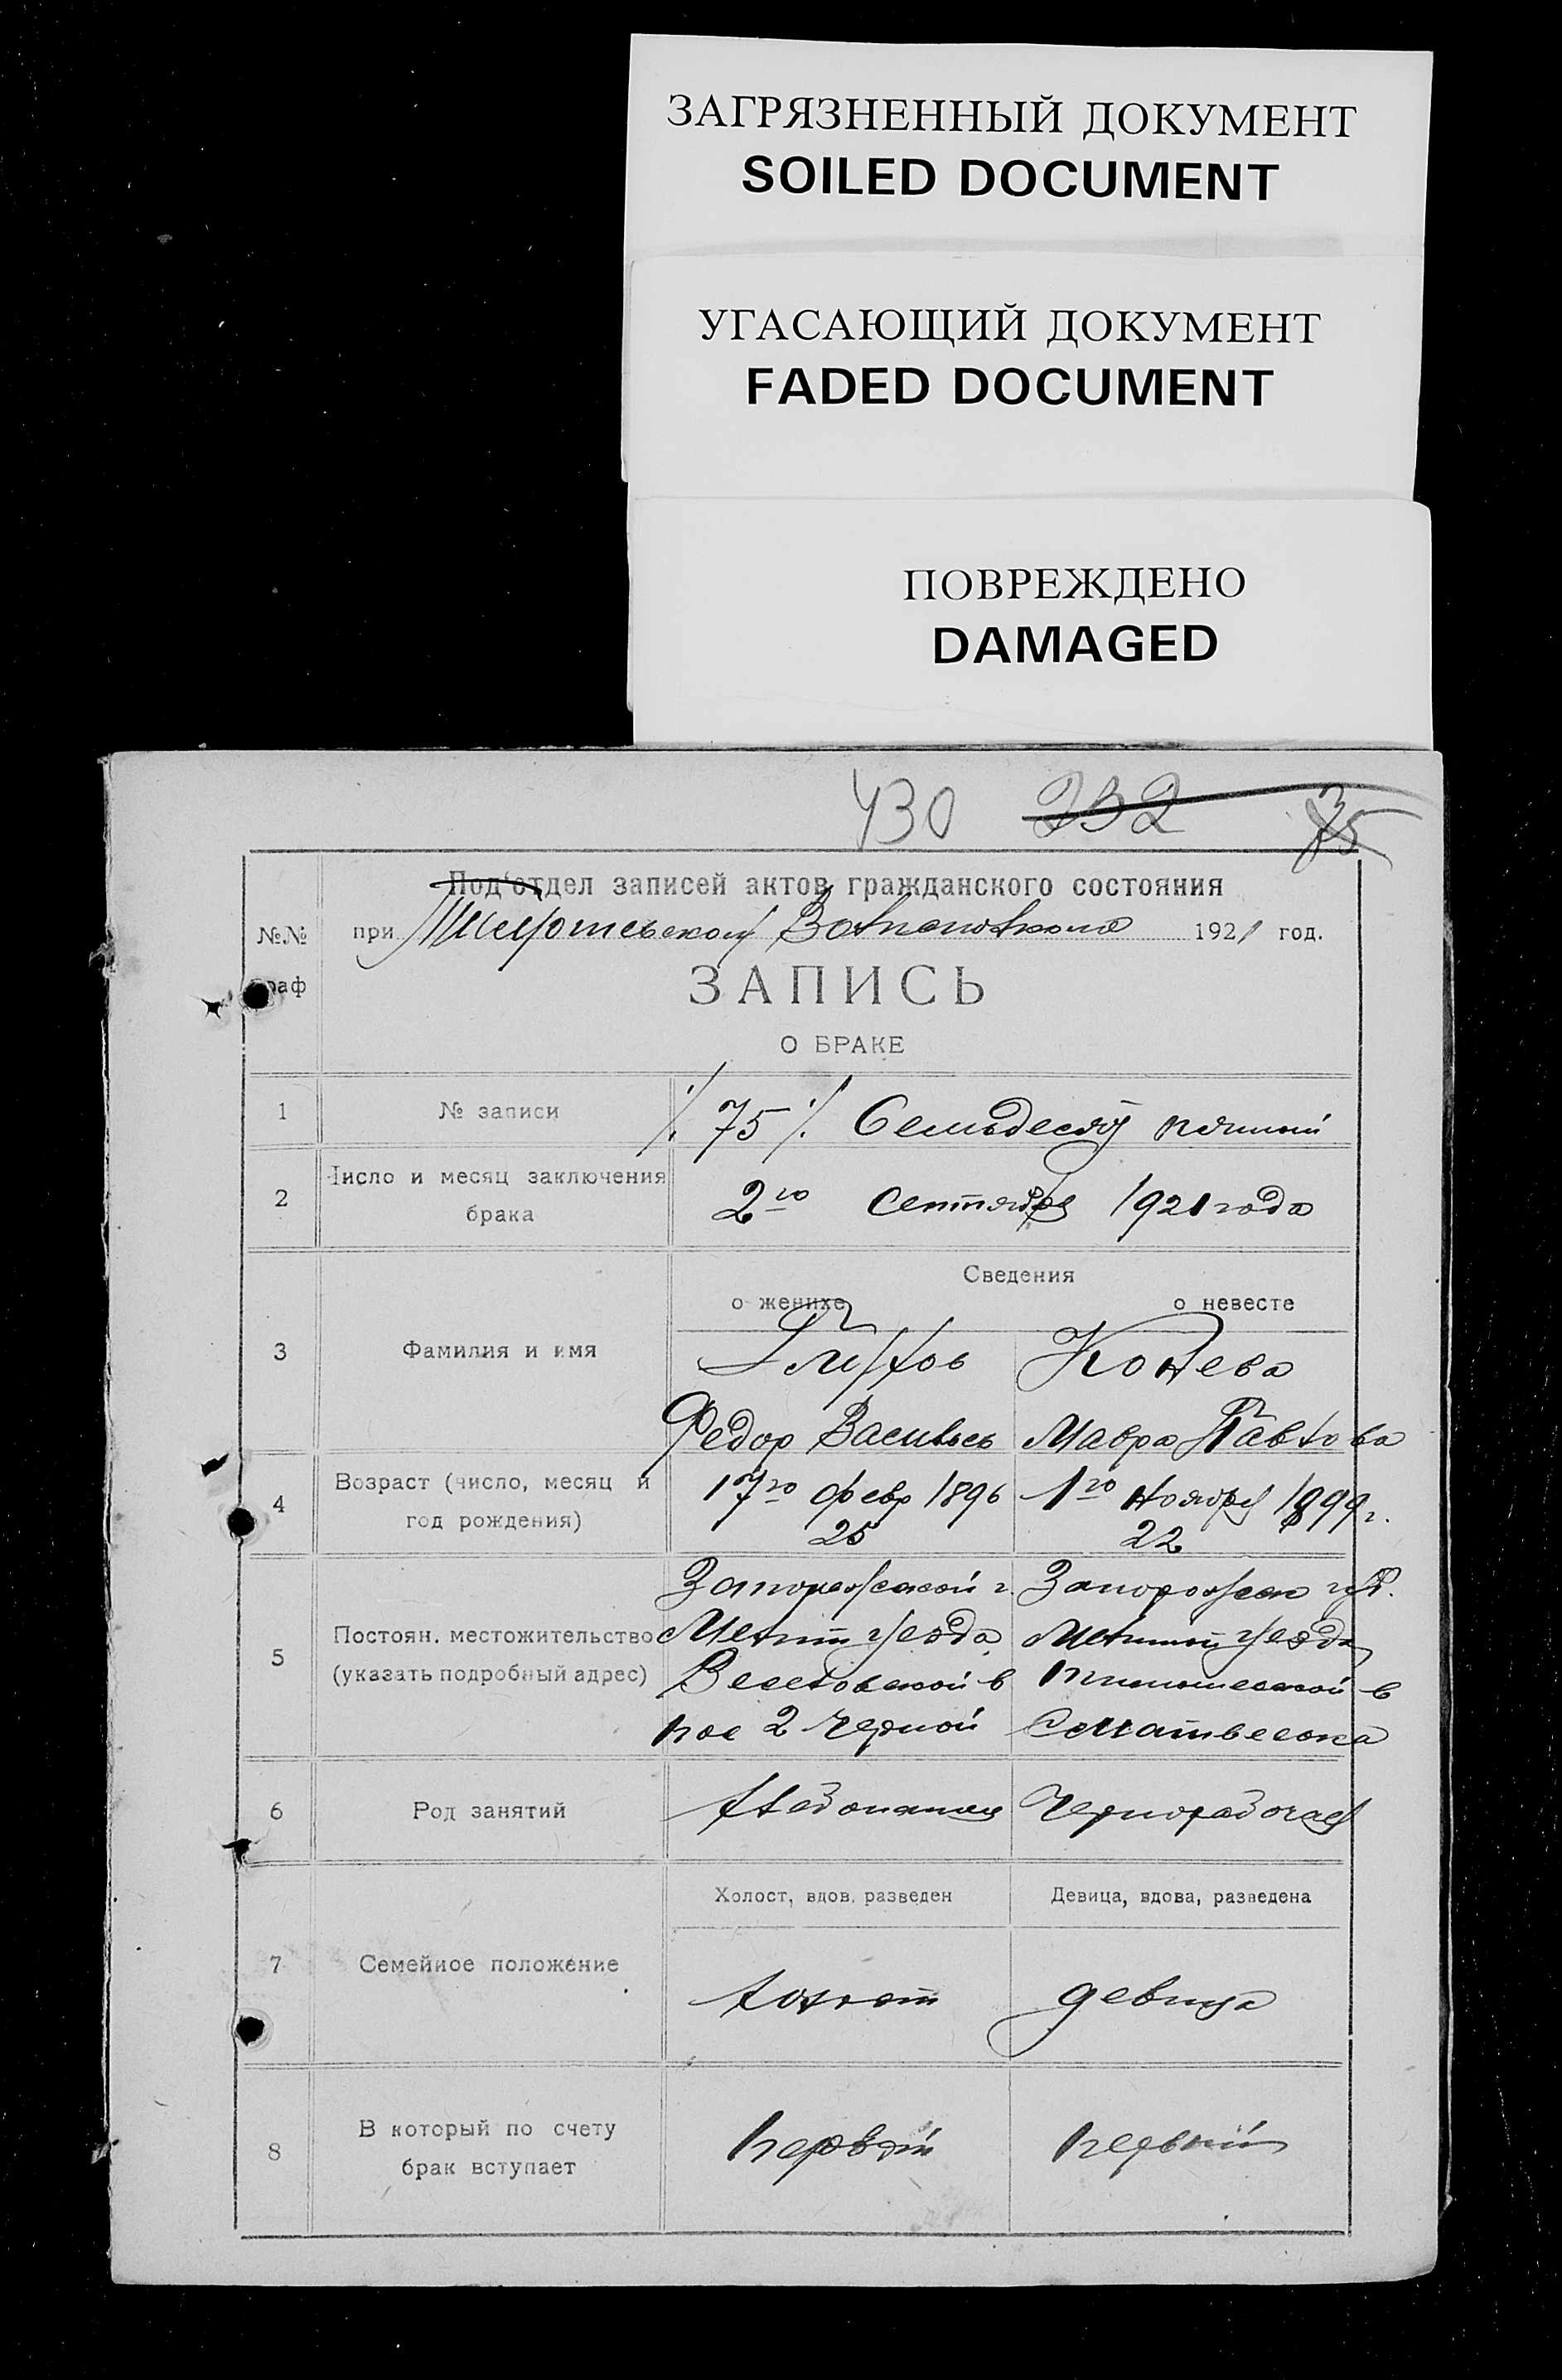 ЗАГРЯЗНЕННЫЙ ДОКУМЕНТ
SOILED DOCUMENT
УГАСАЮЩИЙ ДОКУМЕНТ
FADED DOCUMENT
ПОВРЕЖДЕНО
DAMAGED
430 232 75
Под'отдел записей актов гражданского состояния
№№ граф
при 1921 год.
ЗАПИСЬ
О БРАКЕ
1 № записи ·/. 75 ·/. Семьдесят пятый
2 Число и месяц заключения брака 2го сентября 1921 года
Сведения
о женихе о невесте
3 Фамилия и имя Глухов Конева
Федор Васильев Мавра Павлова
4 Возраст (число, месяц и год рождения) 17го февр 1896 1го ноября 1899 г.
25 22
5 Постоян. местожительство (указать подробный адрес)
Запорожской г. Запорожск губ.
Мелит уезда Мелитоп уезда
Веселовской в в
пос 2 Черной С Матвеевка
6 Род занятий Хлебопашец Чернорабочая
7 Семейное положение
Холост, вдов. разведен Девица, вдова, разведена
холост девица
8 В который по счету брак вступает первый первый